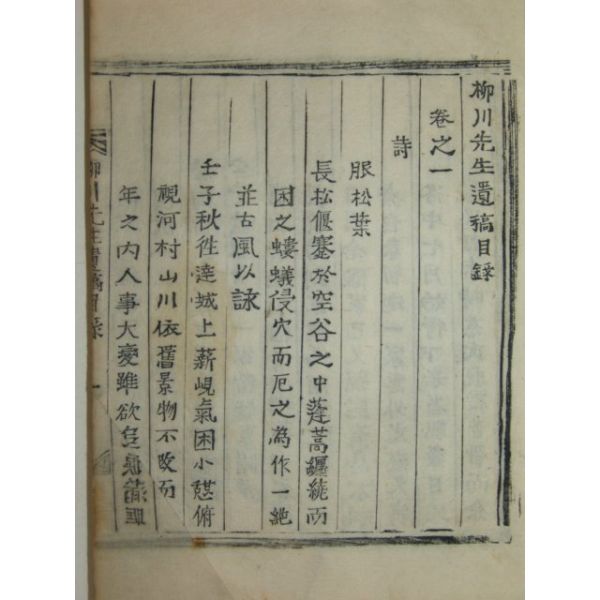 柳川先生遺稿目録
卷之一
詩
服松葉
長松偃蹇於空谷之中蓬蒿纏繞而
困之螻蟻侵穴而厄之為作一絶
並古風以詠
壬子秋徃達城上薪峴氣困小憇俯
視河村山川依舊景物不改而
年之內人事大變雖欲
柳川先生遺稿目録
一